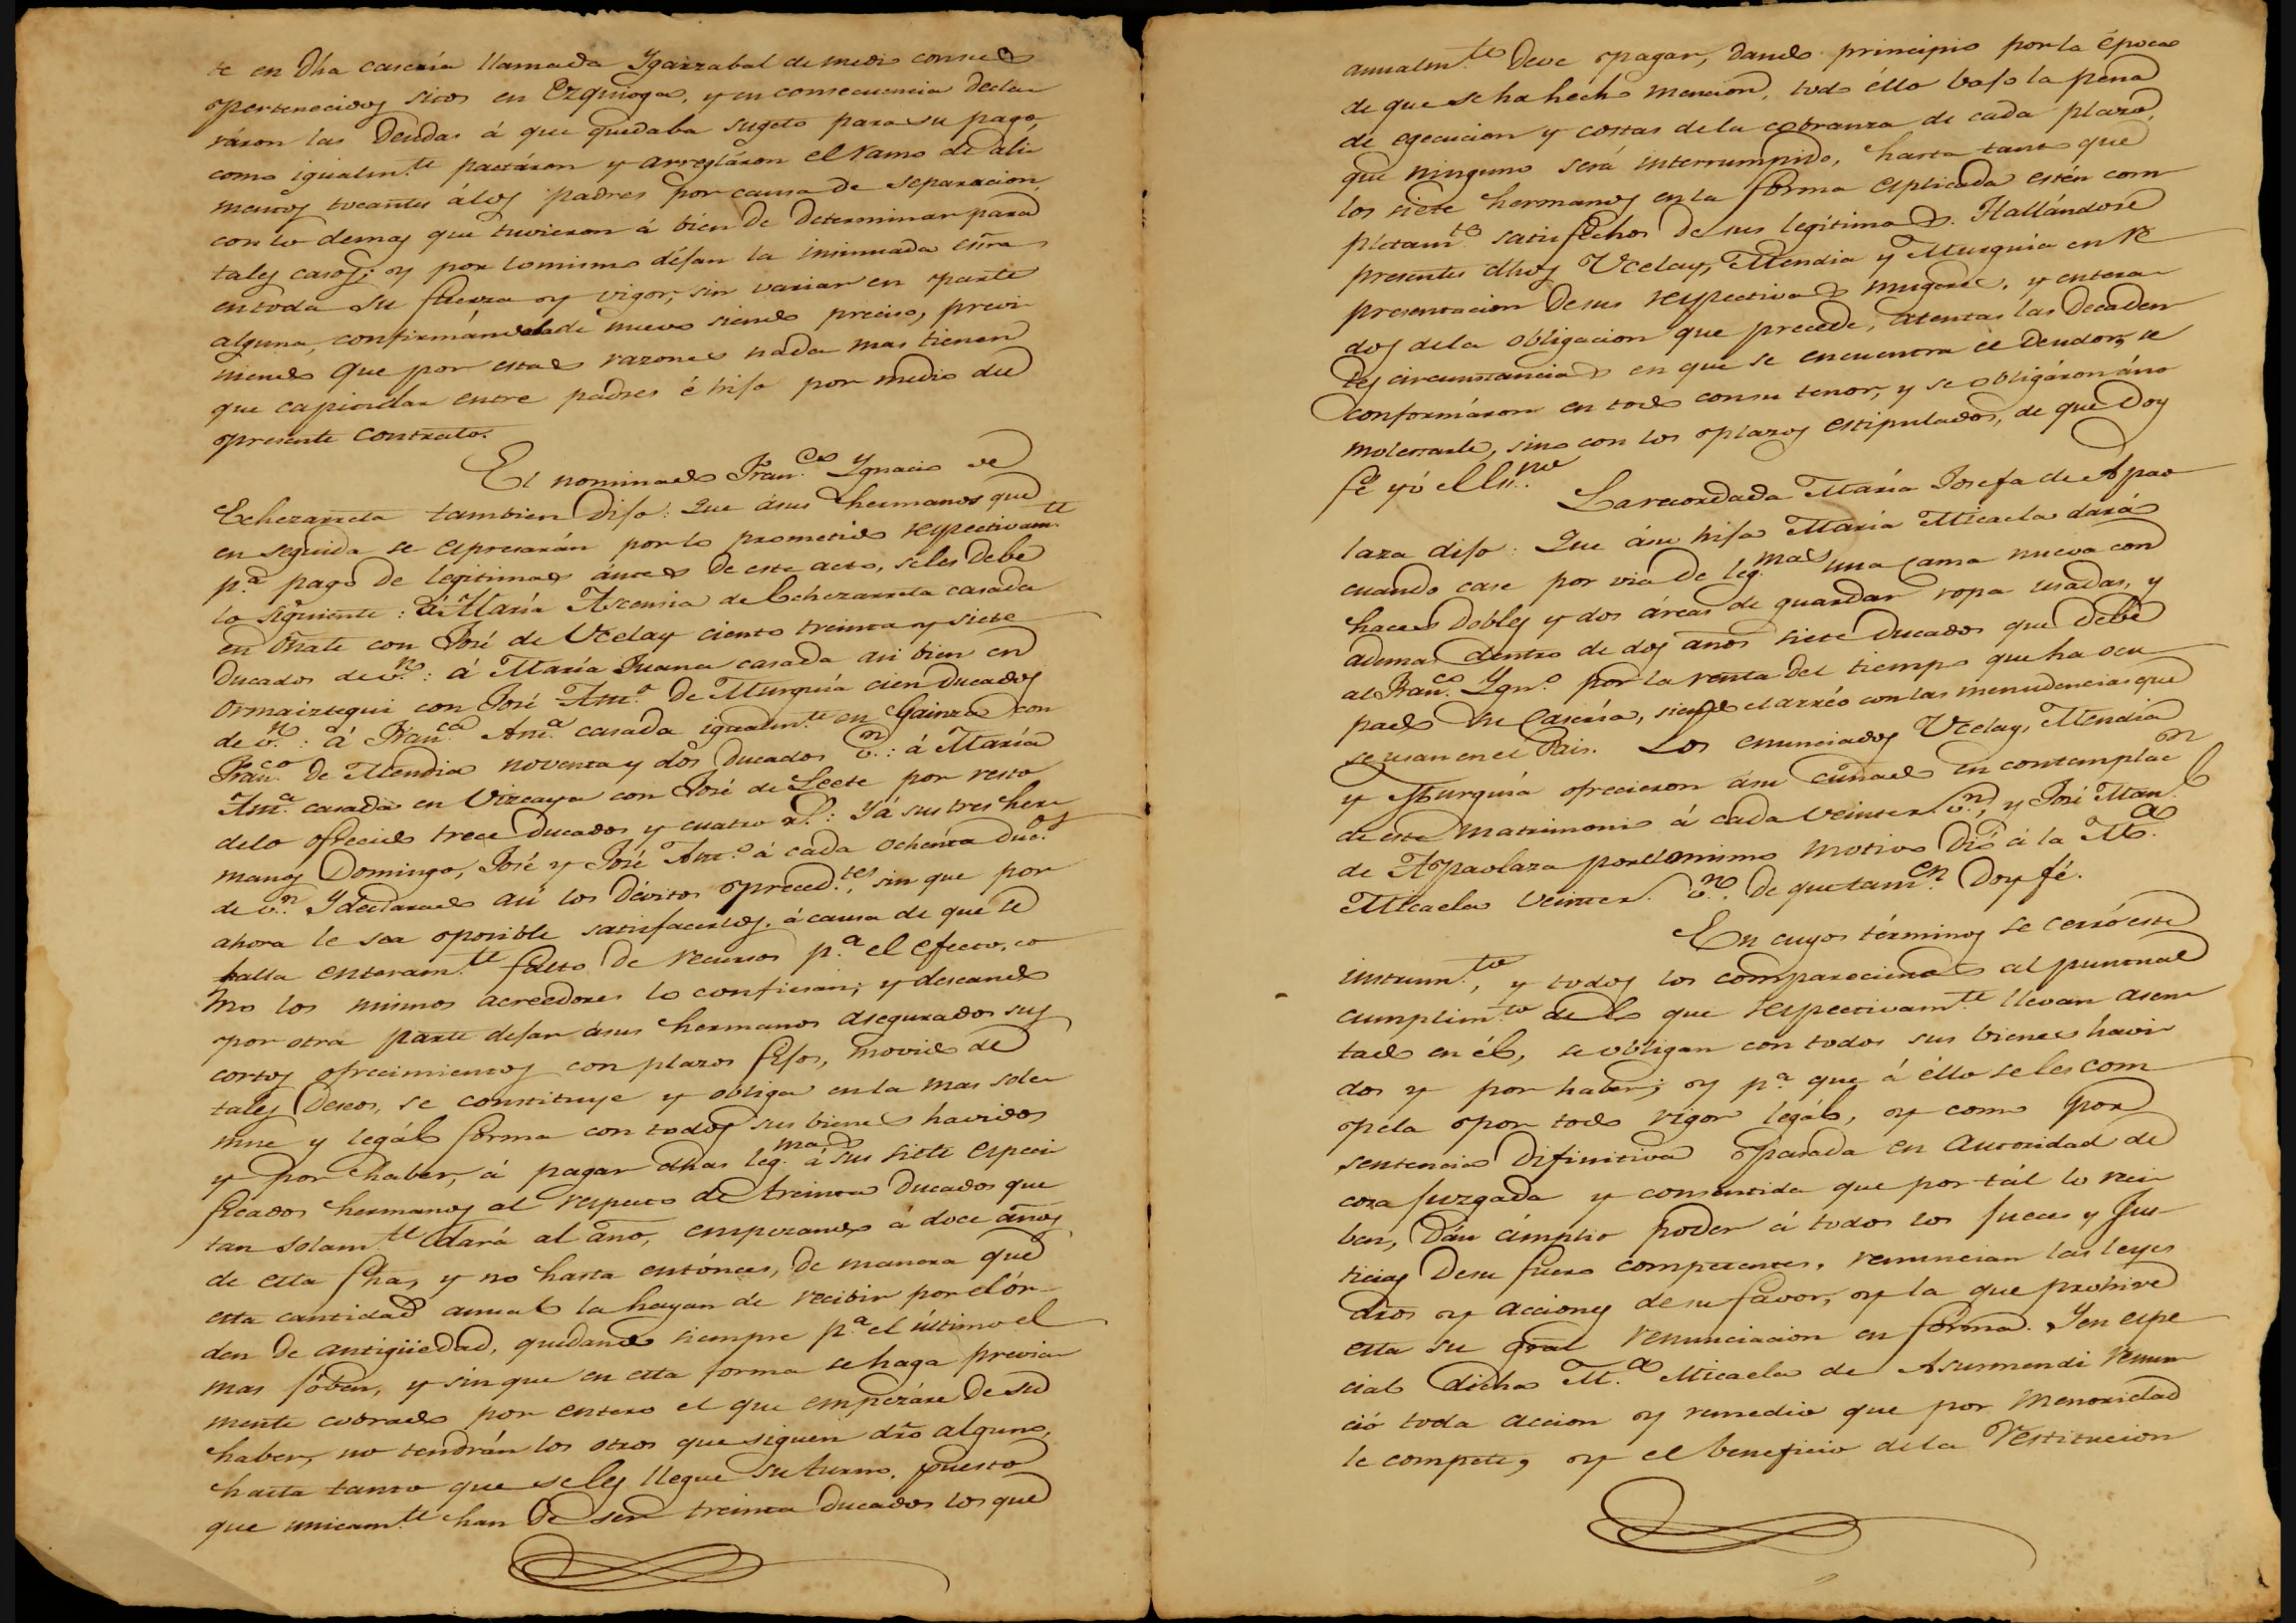 te en dha caseria llamada Ygarzabal de medio con sus
pertenecidos sitos en Ezquioga, y en consecuencia decla
ráron las deudas á que quedaba sugeto para su pago,
como igualm.te pactáron y arregláron el ramo de ali
mentos tocantes á los padres por causa de separacion,
con lo demas que tuvieron á bien de determinar para
tales casos; y por lo mismo déjan la insinuada esñra
en toda su fuerza y vigor, sin variar en parte
alguna, confirmándola de nuevo siendo preciso, previ
niendo que por estas razones nada mas tienen
que capitular entre padres é hijo por medio del
presente contrato.
El nominado Fran.co Ygnacio de
Echezarreta tambien dijo: Que á sus hermanos que
en seguida se espresarán por lo prometido respectivam.te
p.a pago de legitimas ántes de este acto, se les debe
lo siguiente: á María Ascensia de Echezarreta casada
en Oñate con José de Ucelay ciento treinta y siete
ducados de v.n: á María Juana casada asi bien en
Ormaiztegui con José Ant.o de Murguía cien ducados
de v.n: á Fran.ca Ant.a casada igualm.te en Gainza con
Fran.co de Mendia noventa y dos ducados v.n: á María
Ant.a casada en Vizcaya con José de Leete por resto
de lo ofrecido trece ducados y cuatro r.s: Y á sus tres her
manos Domingo, José y José Ant.o á cada ochenta duc.os
de v.n Y declarando asi los dévitos preced.tes, sin que por
ahora le sea posible satisfacerlos, á causa de que se
halla enteram.te falto de recursos p.a el efecto, co
mo los mismos acreedores lo confiesan; y deseando
por otra parte dejar á sus hermanos asegurados sus
cortos ofrecimientos con plazos fijos, movido de
tales deseos, se constituye y obliga en la mas sole
mne y legál forma con todos sus bienes havidos
y por haber, á pagar dhas leg.mas á sus siete especi
ficados hermanos al respecto de treinta ducados que
tan solam.te dará al año, empezando á doce años
de esta fha, y no hasta entónces, de manera que
esta cantidad anual la hayan de recibir por el ór-
den de antigüedad, quedando siempre p.a el último el
mas jóben, y sin que en esta forma se haga previa
mente cobrado por entero el que empezáre de su
haber, no tendrán los otros que siguen dro alguno,
hasta tanto que se les llegue su turno, puesto
que unicam.te han de ser treinta ducados los que
anualm.te deve pagar, dando principio por la época
de que se ha hecho mencion, todo éllo bajo la pena
de egecucion y costas de la cobranza de cada plazo,
que ninguno será interrumpido, hasta tanto que
los siete hermanos en la forma esplicada estén com
pletam.te satisfechos de sus legítimas. Hallándose
presentes dhos Ucelay, Mendia y Murguía en re
presentacion de sus respectivas mugeres, y entera
dos de la obligacion que precede, atentas las decaden
tes circunstancias en que se encuentra el deudor, se
conformáron en todo con su tenor, y se obligáron á no
molestarle, sino con los plazos estipulados, de que doy
fé yó el Es.no
La recordada María Josefa de Apao
laza dijo: Que á su hija María Micaela dará
cuando case por via de leg.mas una cama nueva con
haces dobles y dos árcas de guardar ropa usadas, y
ademas dentro de dos años siete ducados que debe
al Fran.co Ygn.o por la renta del tiempo que ha ocu
pado su Caseria, siendo el arréo con las menudencias que
se usan en el Pais. Los enunciados Ucelay, Mendia
y Murguía ofrecieron á su cuñado en contemplac.n
de este matrimonio á cada veinte r.s v.n, y José Man.l
de Apaolaza por el mismo motivo dió á la M.a
Micaela veinte r.s v.n. De que tam.en doy fé.
En cuyos términos se cerró este
instrum.to, y todos los comparecientes al puntual
cumplim.to de lo que respectivam.te llevan asen
tado en él, se obligan con todos sus bienes havi
dos y por haber; y p.a que á éllo se les com
pela por todo rigor legál, y como por
sentencia difinitiva pasada en autoridad de
cosa juzgada y consentida que por tál lo reci
ben, dán ámplio poder á todos los jueces y jus
ticias de su fuero competentes, renuncian las leyes
dros y acciones de su favor, y la que prohive
esta su gral renunciacion en forma. Y en espe
cial dicha M.a Micaela de Asurmendi renun
ció toda accion y remedio que por menoridad
le compete, y el beneficio de la restitucion